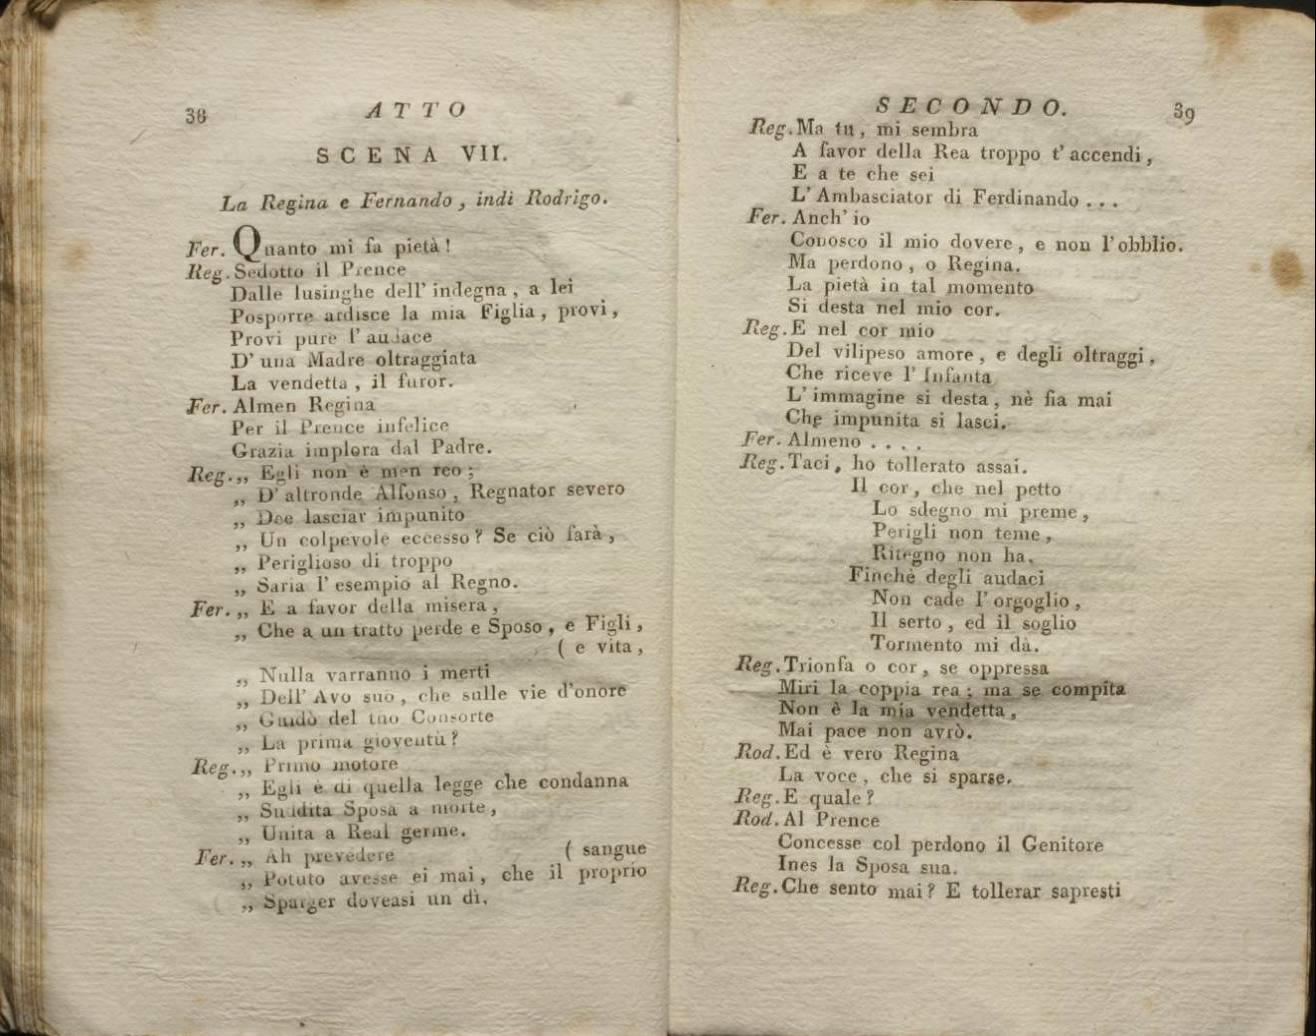 38
ATTO
SCENA VII.
La Regina e Fernando, indi Rodrigo.
Fer. Quanto mi fa pietà!
Reg. Sedotto il Prence
Dalle lusinghe dell' indegna, a lei
Posporre ardisce la mia Figlia, provi,
Provi pure l' audace
D' una Madre oltraggiata
La vendetta, il furor.
Fer. Almen Regina
Per il Prence infelice
Grazia implora dal Padre.
Reg. „ Egli non è men reo;
„ D' altronde Alfonso, Regnator severo
„ Dee lasciar impunito
„ Un colpevole eccesso? Se ciò farà,
„ Periglioso di troppo
„ Saria l' esempio al Regno.
Fer. „ E a favor della misera,
„ Che a un tratto perde e Sposo, e Figli,
( e vita,
„ Nulla varranno i merti
„ Dell' Avo suo, che sulle vie d'onore
„ Guidò del tuo Consorte
„ La prima gioventù?
Reg. „ Primo motore
„ Egli è di quella legge che condanna
„ Suddita Sposa a morte,
„ Unita a Real germe.
Fer. „ Ah prevedere ( sangue
„ Potuto avesse ei mai, che il proprio
„ Sparger doveasi un dì.
SECONDO.
39
Reg. Ma tu, mi sembra
A favor della Rea troppo t' accendi,
E a te che sei
L' Ambasciator di Ferdinando ...
Fer. Anch' io
Conosco il mio dovere, e non l'obblio.
Ma perdono, o Regina.
La pietà in tal momento
Si desta nel mio cor.
Reg. E nel cor mio
Del vilipeso amore, e degli oltraggi,
Che riceve l' Infanta
L' immagine si desta, nè fia mai
Che impunita si lasci.
Fer. Almeno ....
Reg. Taci, ho tollerato assai.
Il cor, che nel petto
Lo sdegno mi preme,
Perigli non teme,
Ritegno non ha.
Finchè degli audaci
Non cade l' orgoglio,
Il serto, ed il soglio
Tormento mi dà.
Reg. Trionfa o cor, se oppressa
Miri la coppia rea; ma se compita
Non è la mia vendetta,
Mai pace non avrò.
Rod. Ed è vero Regina
La voce, che si sparse.
Reg. E quale?
Rod. Al Prence
Concesse col perdono il Genitore
Ines la Sposa sua.
Reg. Che sento mai? E tollerar sapresti